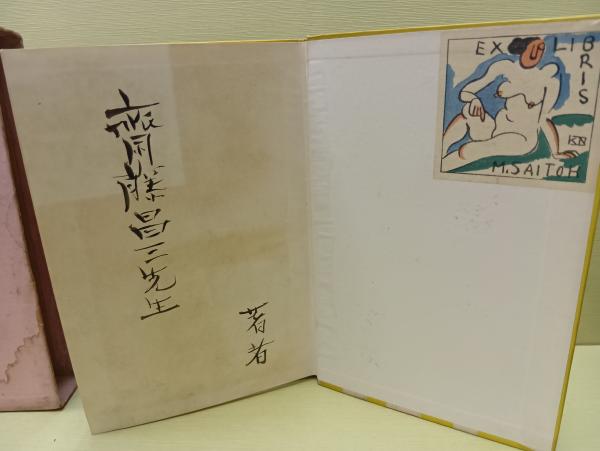 齋藤昌三先生
著者
EX LIBRIS
KN
M.SAITOH